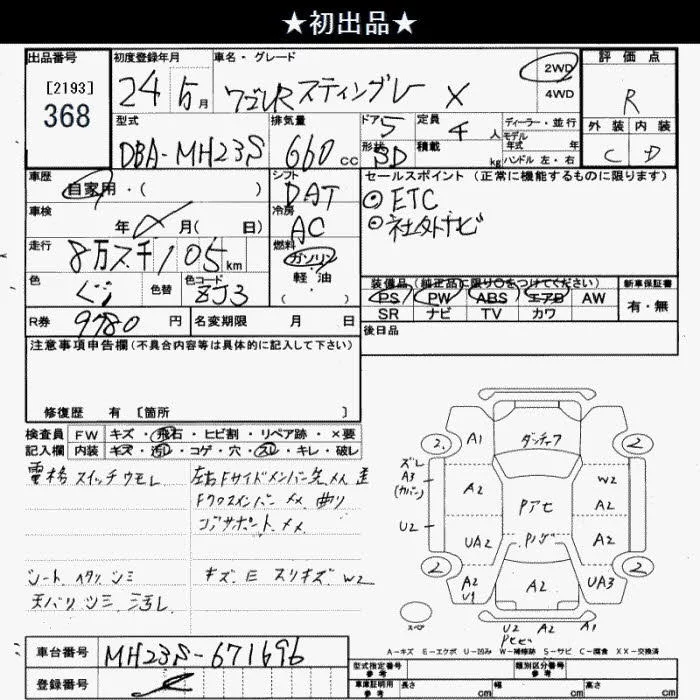 ★初出品★
出品番号 初度登録年月 車名・グレード 2WD 評価点
[2193] 24 5月 ワゴンR スティングレー X 4WD R
368 型式 排気量 ドア5 定員 4人 ディーラー・並行 外装 内装
DBA-MH23S 660cc 形状 SD 積載 kg モデル年式 年 C D
ハンドル 左・右
車歴 シフト セールスポイント(正常に機能するものに限ります)
自家用・( ) DAT ◎ETC
車検 冷房 ◎社外ナビ
年 月( 日) AC
走行 燃料
8万2千105km ガソリン
色 色替 色コード 軽・油 装備品(純正品に限り○をつけてください) 新車保証書
ZJ3 ( ) PS PW ABS エアB AW 有・無
SR ナビ TV カワ
R券 9780円 名変期限 月 日 後日品
注意事項申告欄(不具合内容等は具体的に記入して下さい)
修復歴 有 [箇所 ]
検査員 FW キズ・飛石・ヒビ割・リペア跡・×要
記入欄 内装 キズ・汚レ・コゲ・穴・スレ・キレ・破レ
電格 スイッチウモレ 左右Fサイドメンバー先 メメ 歪
Fクロスメンバー メメ 曲り
コアサポート メメ
シート ヘタリ シミ キズ E スリキズ W2
天バリ シミ 汚レ
A1 ダッチ 2 2
ズレ A3 (カバー) A2 Pアセ W2 A2
U2 UA2 A2
2 A2 U1 A2 UA3 2
スペア U2 A2 A1
A-キズ E-エクボ U-凹み W-補修跡 S-サビ C-腐食 XX-交換済
車台番号 MH23S-671696
登録番号
型式指定番号 参考 類別区分番号 参考
車庫証明用 参考 長さ cm 幅 cm 高さ cm